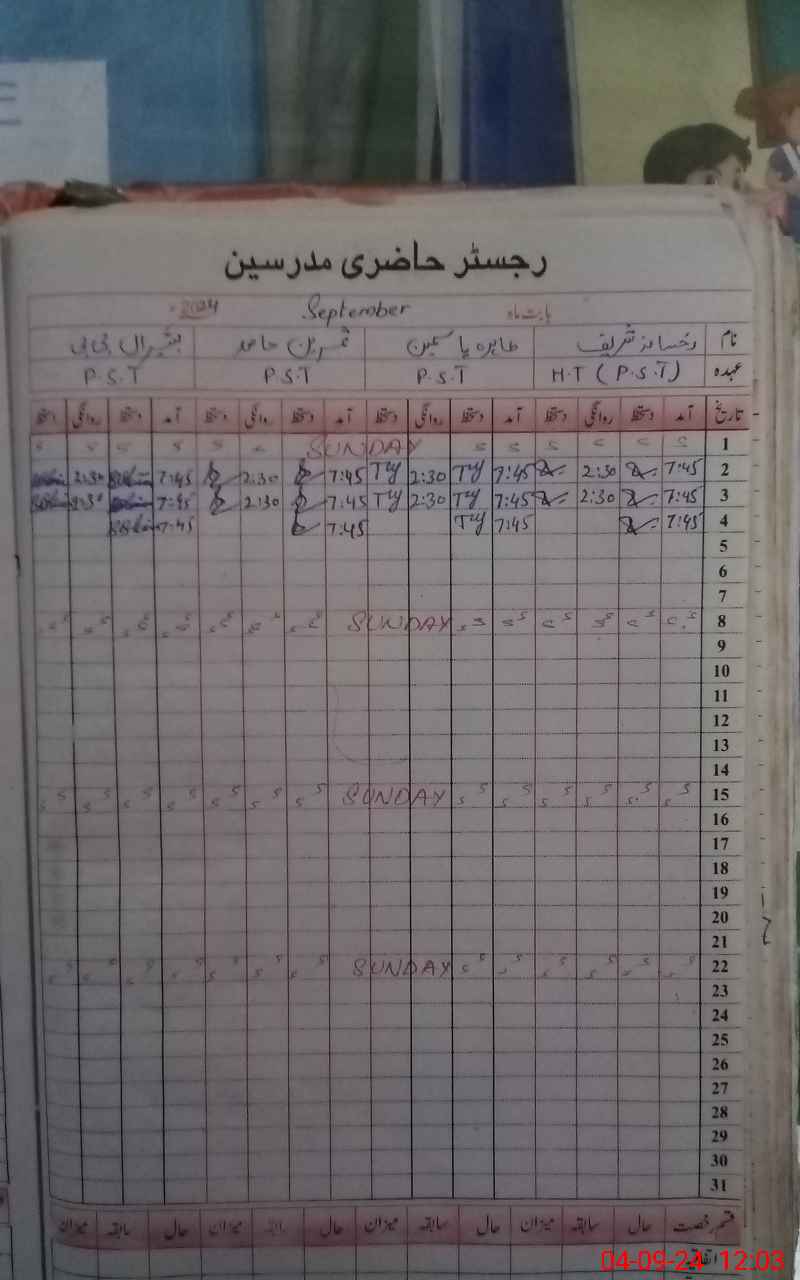 رجسٹر حاضری مدرسین
بابت ماہ September 2024
نام رخسانہ شریف طاہرہ یاسمین ثمرین حامد بشیراں بی بی
عہدہ H.T (P.S.T) P.S.T P.S.T P.S.T
تاریخ آمد دستخط روانگی دستخط آمد دستخط روانگی دستخط آمد دستخط روانگی دستخط آمد دستخط روانگی دستخط
1 SUNDAY
2 7:45 2:30 7:45 TY 2:30 TY 7:45 2:30 7:45 2:30
3 7:45 2:30 7:45 TY 2:30 TY 7:45 2:30 7:45 2:30
4 7:45 7:45 TY 7:45 7:45
5
6
7
8 SUNDAY
9
10
11
12
13
14
15 SUNDAY
16
17
18
19
20
21
22 SUNDAY
23
24
25
26
27
28
29
30
31
قسم رخصت حال سابقہ میزان حال سابقہ میزان حال سابقہ میزان حال سابقہ میزان
اتفاقیہ
04-09-24 12:03